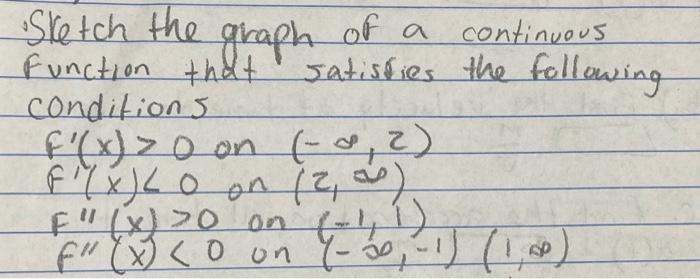 Sketch the graph of a continuous
function that satisfies the following
conditions
f'(x) > 0 on (-∞, 2)
f'(x) < 0 on (2, ∞)
f"(x) > 0 on (-1, 1)
f"(x) < 0 on (-∞, -1) (1, ∞)